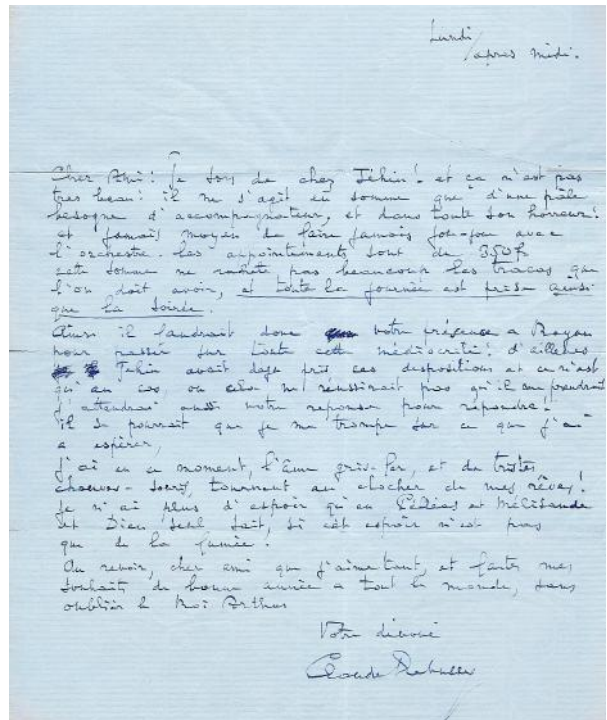 Lundi
après midi.
Cher Ami! Je sors de chez Jéhin! et ça n'est pas
très beau! il ne s'agit en somme que d'une pâle
besogne d'accompagnateur, et dans toute son horreur!
et jamais moyen de faire jamais jou-jou avec
l'orchestre. Les appointements sont de 350f
cette somme ne rachète pas beaucoup les tracas que
l'on doit avoir, et toute la journée est prise ainsi
que la soirée.
Ainsi il faudrait donc votre présence a Royan
pour passer sur toute cette médiocrité! d'ailleurs
Jehin avait déjà pris ces dispositions et ce n'est
qu'au cas, où cela ne réussirait pas qu'il me prendrait
j'attendrai aussi votre réponse pour répondre!
il se pourrait que je me trompe sur ce que j'ai
a espérer,
j'ai en ce moment, l'âme gris-fer, et de tristes
chauves-souris, tournent au clocher de mes rêves!
Je n'ai plus d'espoir qu'en Pelléas et Mélisande
et Dieu seul sait, si cet espoir n'est pas
que de la fumée!
Au revoir, cher ami que j'aime tant, et faites mes
souhaits de bonne année a tout le monde, sans
oublier le Roi Arthus
Votre dévoué
Claude Debussy